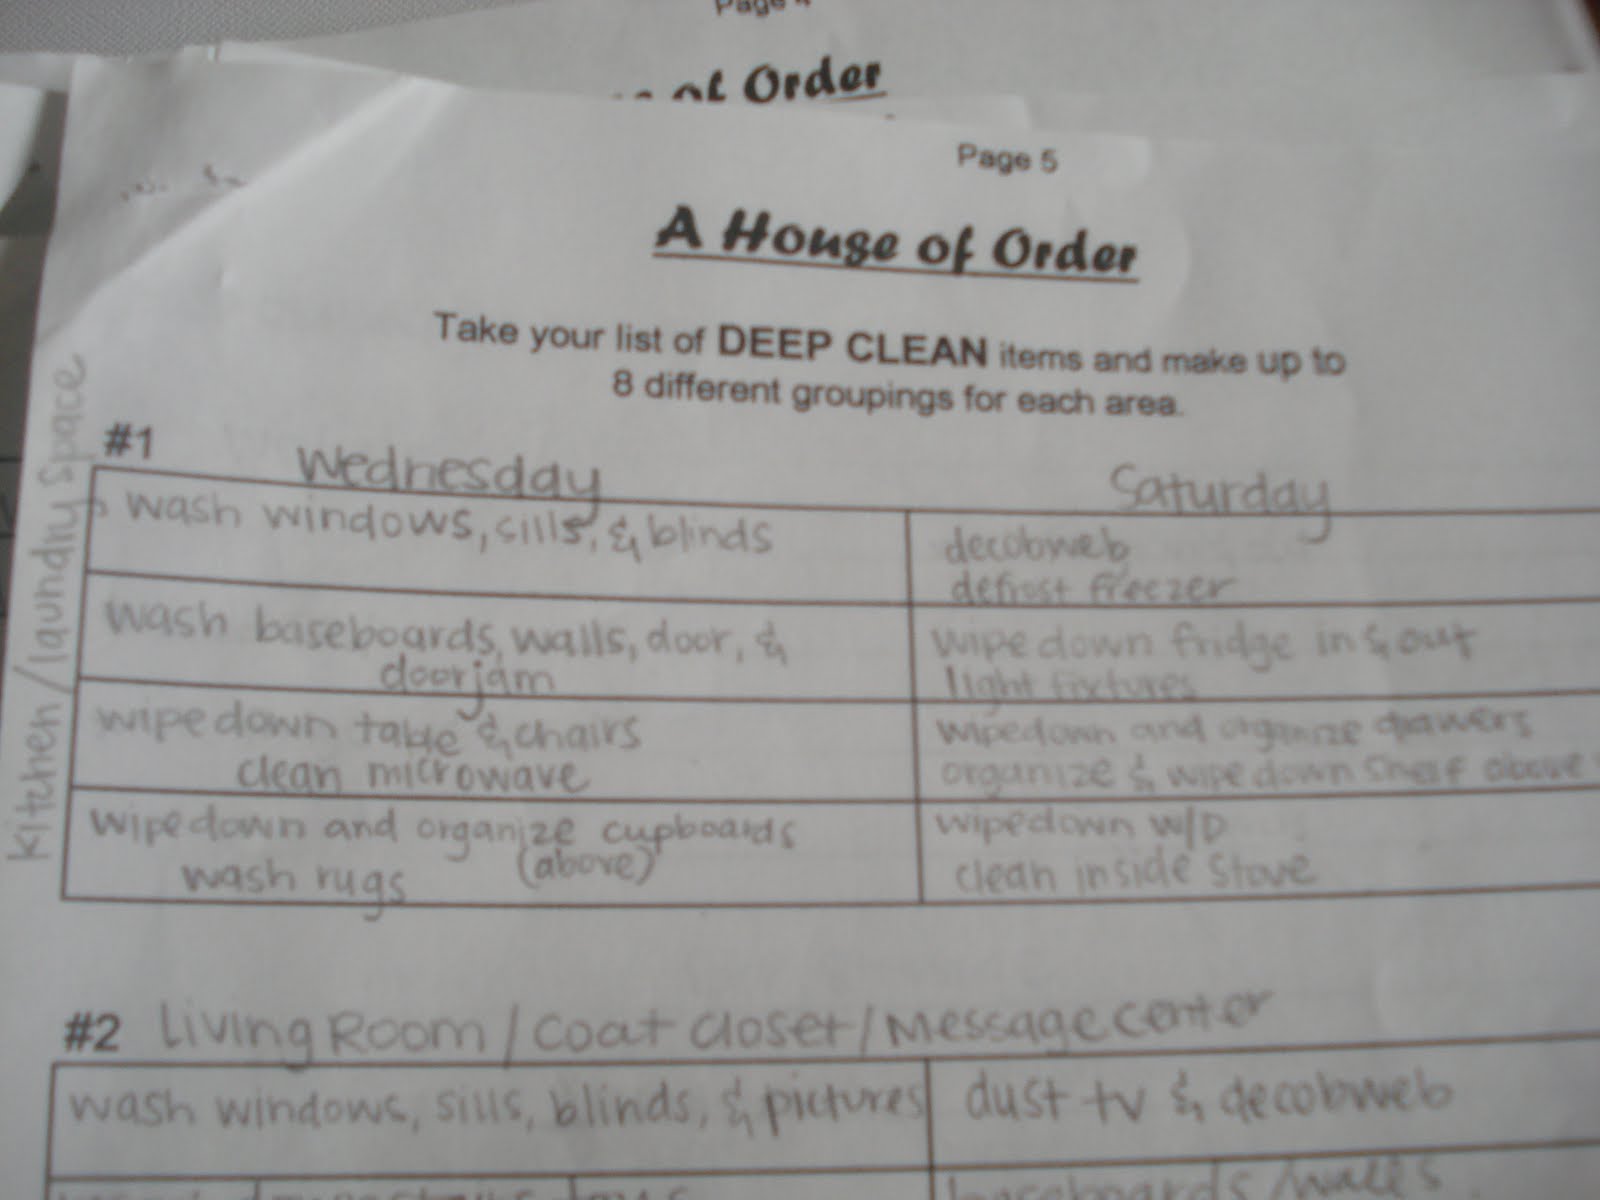 Page 4
of Order
Page 5
A House of Order
Take your list of DEEP CLEAN items and make up to
8 different groupings for each area.
Kitchen/laundry space
#1
Wednesday
Saturday
wash windows, sills, & blinds
decobweb
defrost freezer
wash baseboards, walls, door, &
doorjam
wipe down fridge in & out
light fixtures
wipe down table & chairs
clean microwave
wipedown and organize drawers
organize & wipe down shelf above
wipe down and organize cupboards
(above)
wash rugs
wipedown w/D
clean inside stove
#2 Living Room / coat closet / Message center
wash windows, sills, blinds, & pictures
dust tv & decobweb
baseboards/walls